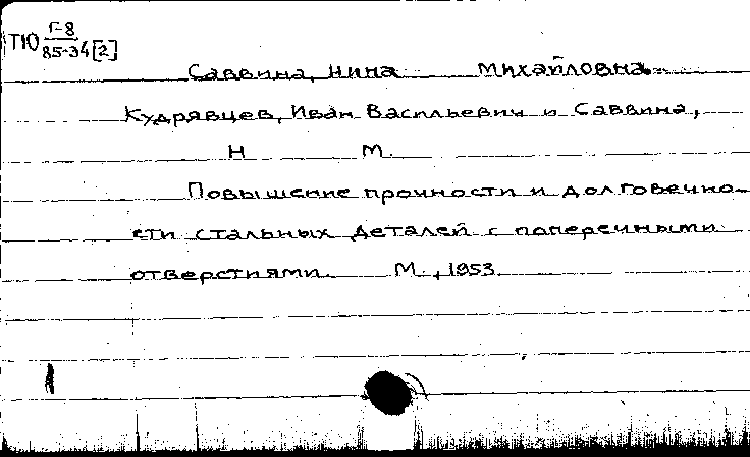 ТЮ Г-8
85-34[2]
Саввина, Нина Михайловна.
Кудрявцев, Иван Васильевич и Саввина,
Н М.
Повышение прочности и долговечно-
сти стальных деталей с поперечными
отверстиями. М., 1953